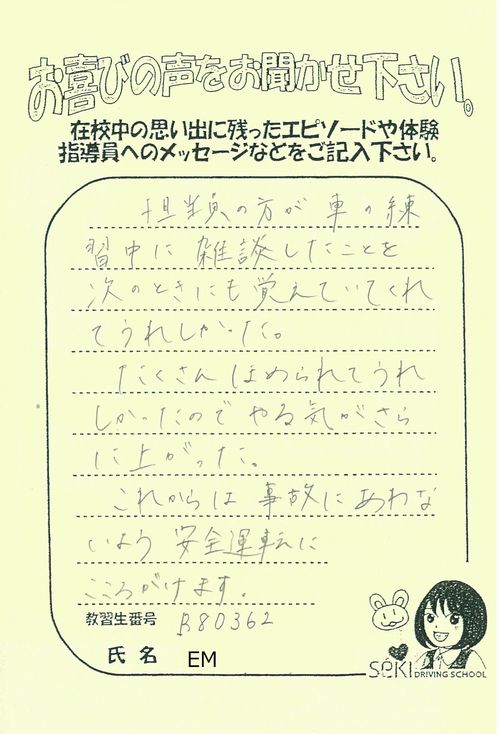 お喜びの声をお聞かせ下さい。
在校中の思い出に残ったエピソードや体験
指導員へのメッセージなどをご記入下さい。
担当員の方が車の練
習中に雑談したことを
次のときにも覚えていてくれ
てうれしかった。
たくさんほめられてうれ
しかったのでやる気がさら
に上がった。
これからは事故にあわな
いよう安全運転に
こころがけます。
教習生番号 B80362
氏名 EM
SéKI DRIVING SCHOOL